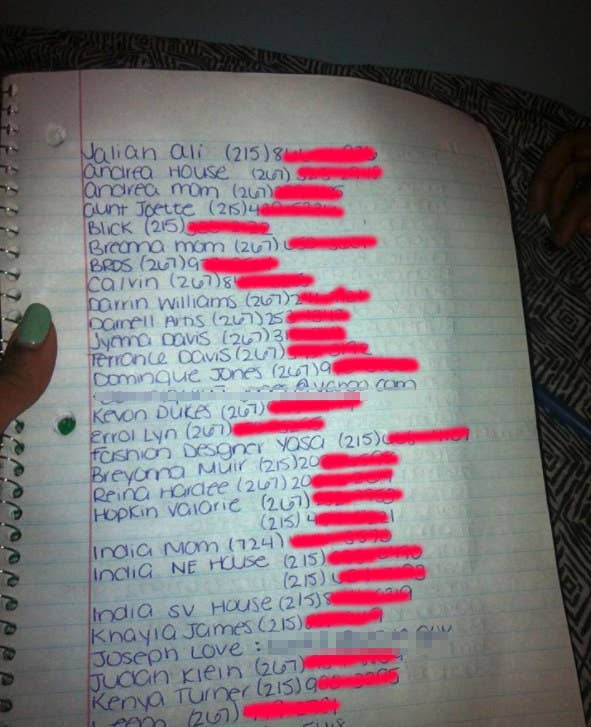 Jalian Ali (215) 8
Andrea House (267)
Andrea mom (267)
Aunt Joette (215) 4
Blick (215)
Breanna mom (267)
BROS (267) 9
Calvin (267) 8
Darrin Williams (267) 2
Darnell Artis (267) 25
Jyenna Davis (267) 31
Terrance Davis (267)
Dominque Jones (267) 9
@yahoo.com
Kevon Dukes (267)
Errol Lyn (267)
Fashion Desgner Yasa (215)
Breyonna Muir (215) 20
Reina Hardee (267) 20
Hopkin Valarie (267)
(215) 4
India Mom (724)
India NE House (215)
(215)
India SV House (215) 8
Khayla James (215)
Joseph Love :
Judan Klein (267)
Kenya Turner (215) 9
(267)